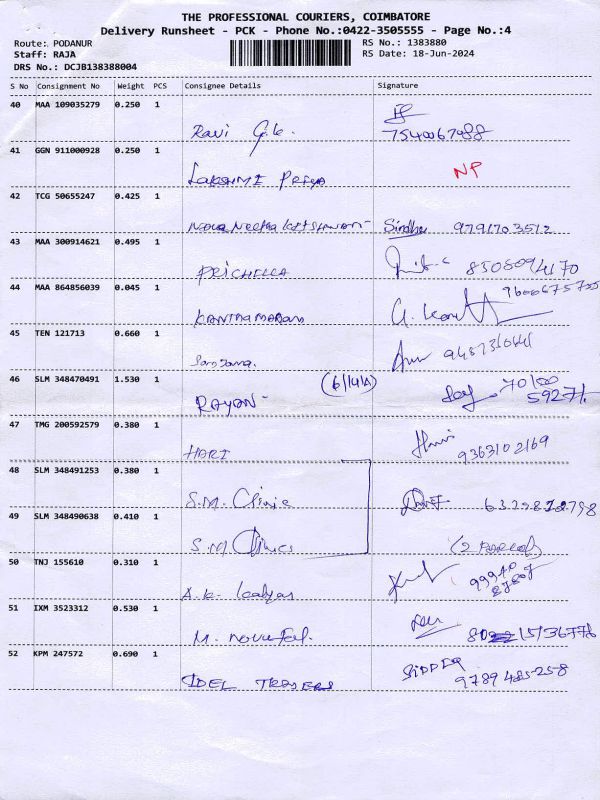 THE PROFESSIONAL COURIERS, COIMBATORE
Delivery Runsheet - PCK - Phone No.:0422-3505555 - Page No.:4
Route: PODANUR RS No.: 1383880
Staff: RAJA RS Date: 18-Jun-2024
DRS No.: DCJB138388004
S No Consignment No Weight PCS Consignee Details Signature
40 MAA 109035279 0.250 1
Ravi G.K. 7540067988
41 GGN 911000928 0.250 1
LAKSHMI PRIYA NP
42 TCG 50655247 0.425 1
Sindhu 9791703512
43 MAA 300914621 0.495 1
PRICHELLA 8508094170
44 MAA 864856039 0.045 1 9600675755
45 TEN 121713 0.660 1
46 SLM 348470491 1.530 1 (6/141A)
RAYAN 70100 59271
47 TMG 200592579 0.380 1
HARI 9363102169
48 SLM 348491253 0.380 1
S.M. Clinic
49 SLM 348490638 0.410 1
S.M Clinics (2 PARCELS)
50 TNJ 155610 0.310 1
51 IXM 3523312 0.530 1
52 KPM 247572 0.690 1
SIDDIQ
IDEL TRADERS 9789 485-258